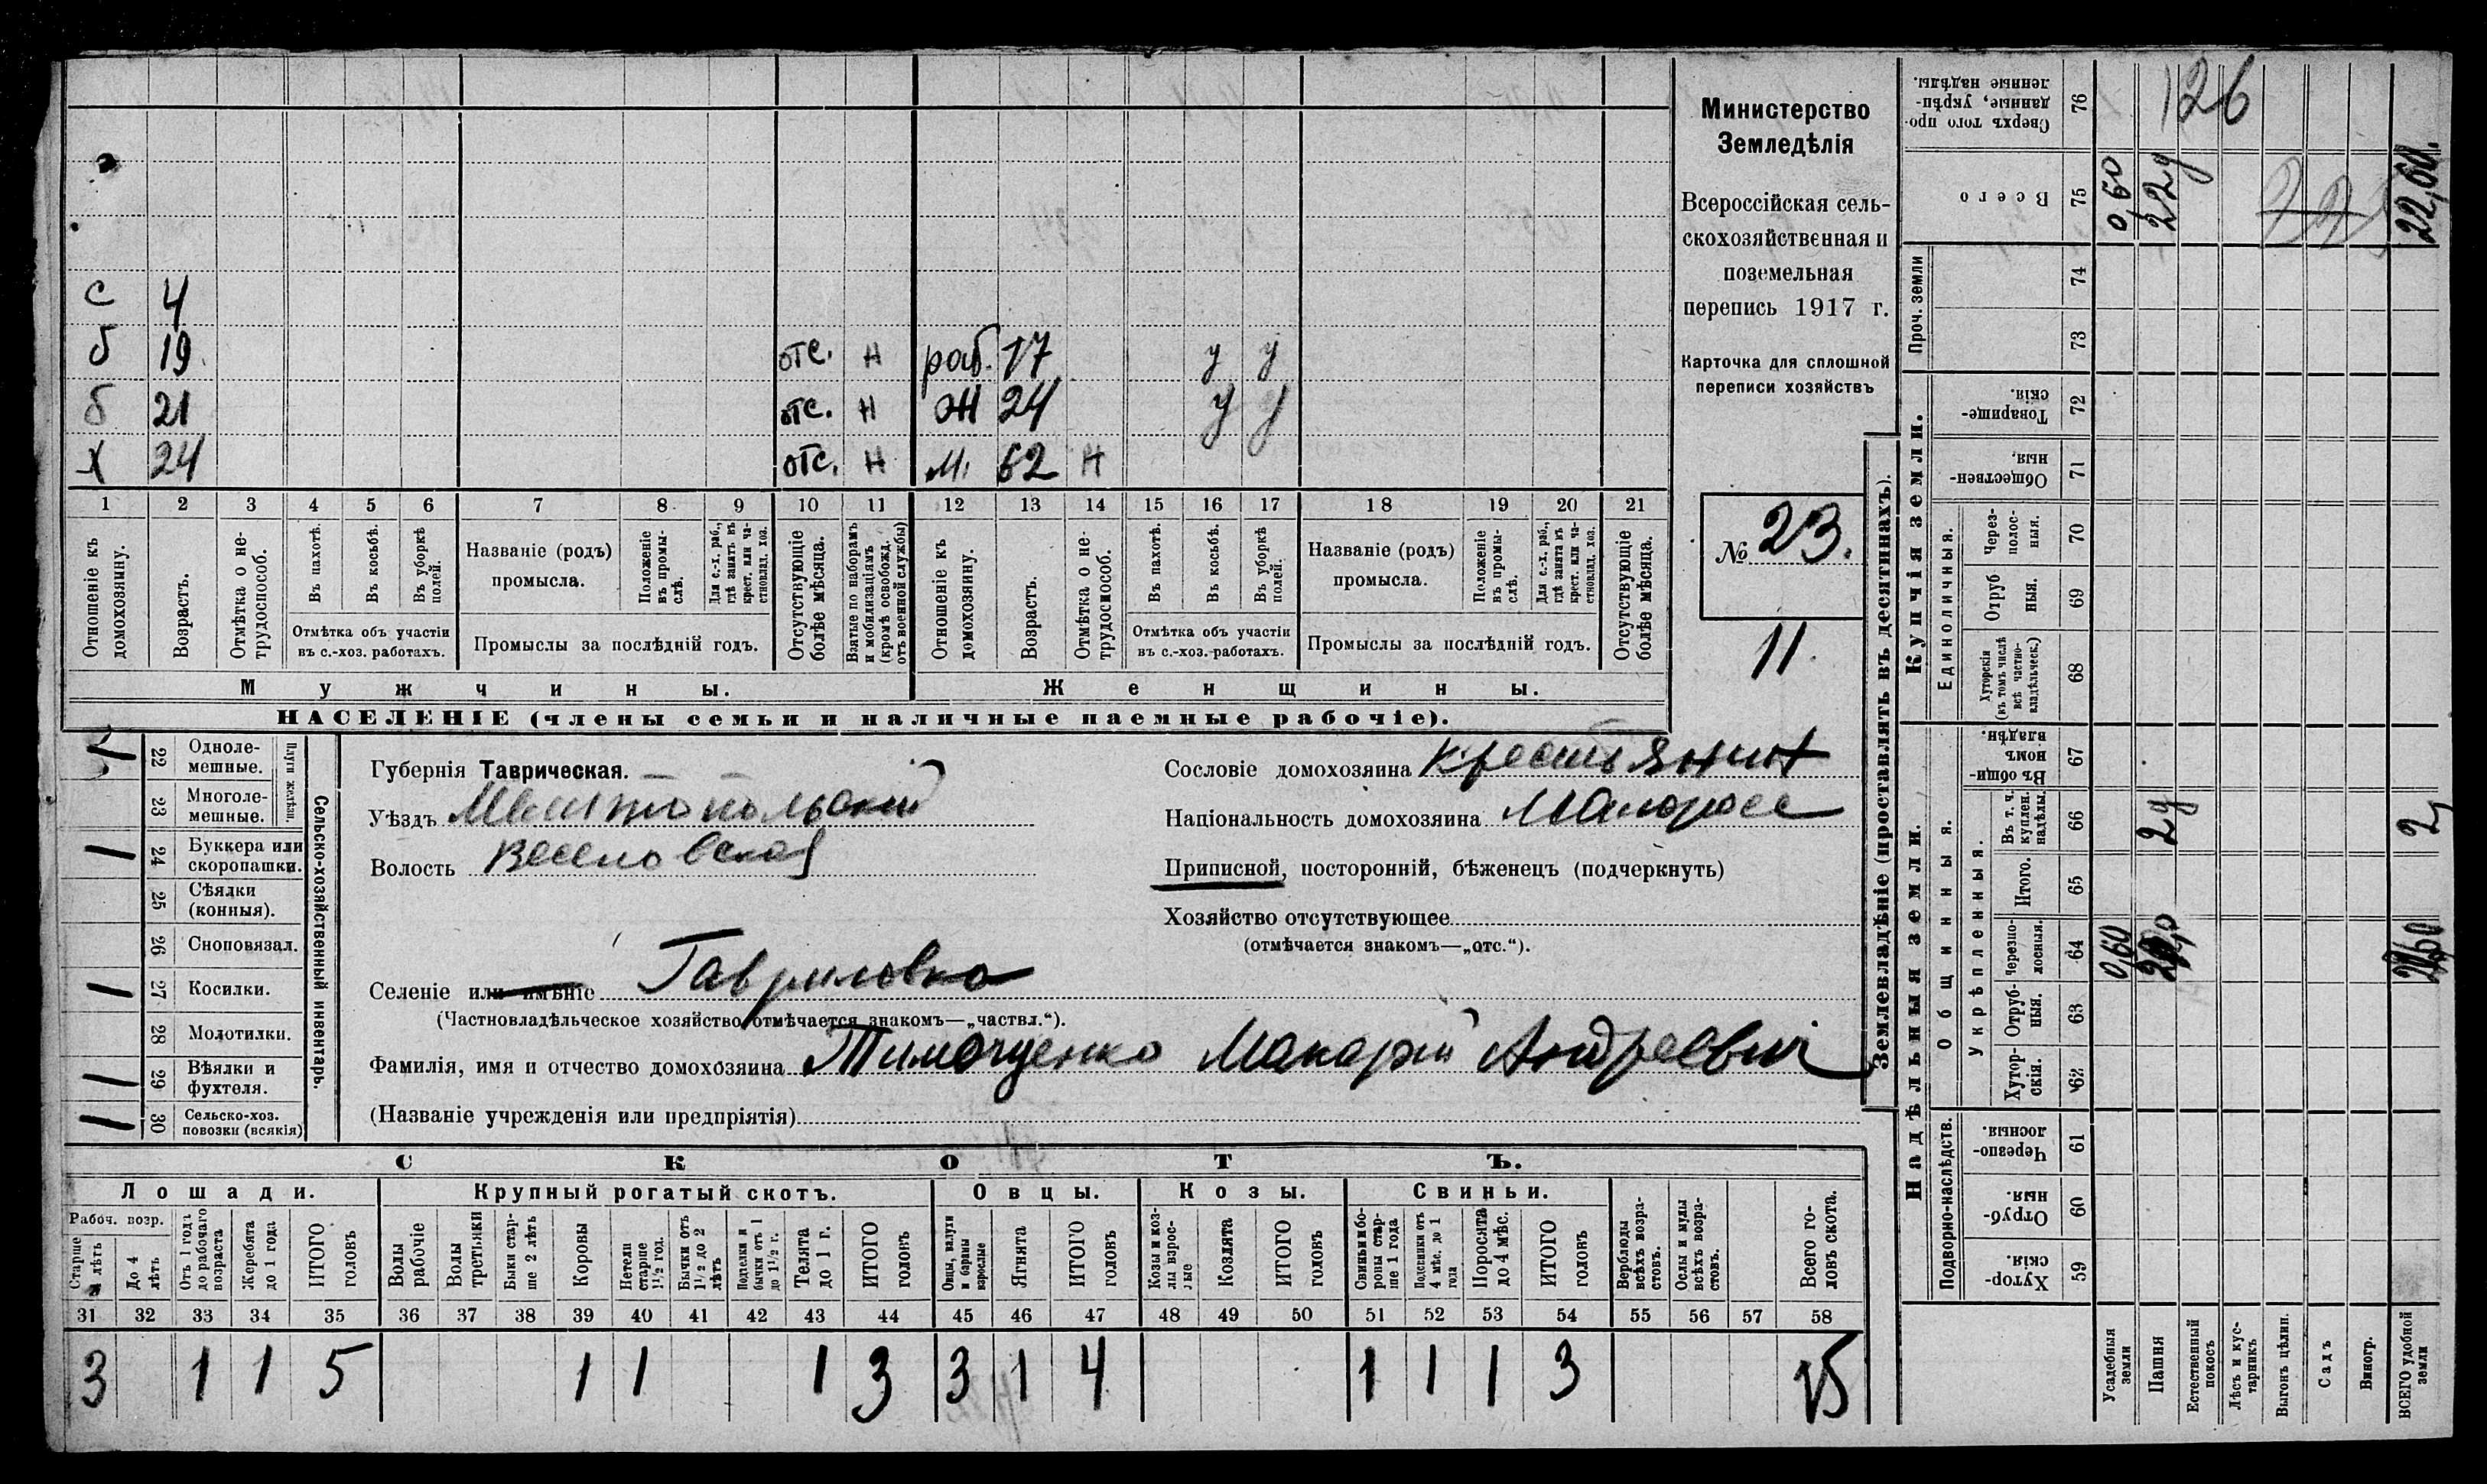 с 4
б 19 отс. н раб. 17 у у
б 21 отс. н ж 24 у у
х 24 отс. н м. 62 н
1 2 3 4 5 6 7 8 9 10 11 12 13 14 15 16 17 18 19 20 21
Отношеніе къ домохозяину.
Возрастъ.
Отмѣтка о не-
трудоспособ.
Въ пахотѣ.
Въ косьбѣ.
Въ уборкѣ
полей.
Отмѣтка объ участіи
въ с.-хоз. работахъ.
Названіе (родъ)
промысла.
Положеніе
въ промы-
слѣ.
Для с.-х. раб.,
гдѣ занятъ въ
крест. или ча-
стновлад. хоз.
Промыслы за послѣдній годъ.
Отсутствующіе
болѣе мѣсяца.
Взятые по наборамъ
и мобилизаціямъ
(кромѣ освобожд.
отъ военной службы)
Отношеніе къ
домохозяину.
Возрастъ.
Отмѣтка о не-
трудоспособ.
Въ пахотѣ.
Въ косьбѣ.
Въ уборкѣ
полей.
Отмѣтка объ участіи
въ с.-хоз.-работахъ.
Названіе (родъ)
промысла.
Положеніе
въ промы-
слѣ.
Для с.-х. раб.,
гдѣ занятъ въ
крест. или ча-
стновлад. хоз.
Промыслы за послѣдній годъ.
Отсутствующіе
болѣе мѣсяца.
Мужчины.
Женщины.
НАСЕЛЕНІЕ (члены семьи и наличные наемные рабочіе).
Министерство
Земледѣлія
Всероссійская сель-
скохозяйственная и
поземельная
перепись 1917 г.
Карточка для сплошной
переписи хозяйствъ
№ 23.
11.
Сельско-хозяйственный инвентарь.
Плуги желѣзн.
22 Одноле-
мешные.
23 Многоле-
мешные.
1 24 Буккера или
скоропашки.
25 Сѣялки
(конныя).
26 Сноповязал.
1 27 Косилки.
28 Молотилки.
1 29 Вѣялки и
фухтеля.
1 30 Сельско-хоз.
повозки (всякія)
Губернія Таврическая.
Уѣздъ Мелитопольский
Волость Веселовская
Сословіе домохозяина крестьянин
Національность домохозяина Малоросс
Приписной, посторонній, бѣженецъ (подчеркнуть)
Хозяйство отсутствующее
(отмѣчается знакомъ—„отс.“).
Селеніе или имѣніе Гавриловка
(Частновладѣльческое хозяйство отмѣчается знакомъ—„частвл.“).
Фамилія, имя и отчество домохозяина Тимощенко Макарий Андреевич
(Названіе учрежденія или предпріятія)
СКОТЪ.
Лошади.
Крупный рогатый скотъ.
Овцы.
Козы.
Свиньи.
Рабоч. возр.
Старше
4 лѣтъ
До 4
лѣтъ
Отъ 1 годъ
до рабочаго
возраста
Жеребята
до 1 года
ИТОГО
головъ
Волы
рабочіе
Волы
третьяки
Быки стар-
ше 2 лѣтъ
Коровы
Нетели
старше
1½ год.
Бычки отъ
1½ до 2
лѣтъ
Подтелки и
бычки отъ 1
до 1½ г.
Телята
до 1 г.
ИТОГО
головъ
Овцы, валухи
и бараны
взрослые
Ягнята
ИТОГО
головъ
Козы и коз-
лы взрос-
лые
Козлята
ИТОГО
головъ
Свиньи и бо-
ровы стар-
ше 1 года
Подсвинки отъ
4 мѣс. до 1
года
Поросята
до 4 мѣс.
ИТОГО
головъ
Верблюды
всѣхъ возра-
стовъ.
Ослы и мулы
всѣхъ возра-
стовъ.
Всего го-
ловъ скота.
31 32 33 34 35 36 37 38 39 40 41 42 43 44 45 46 47 48 49 50 51 52 53 54 55 56 57 58
3 1 1 5 1 1 1 3 3 1 4 1 1 1 3 15
Землевладѣніе (проставлять въ десятинахъ).
Надѣльныя земли.
Купчія земли.
Проч. земли
Подворно-наслѣдств.
Общинныя.
Укрѣпленныя.
Единоличныя.
Сверхъ того про-
данные, укрѣп-
ленные надѣлы.
76
126
Всего
75
0,60
22,60.
74
73
Товарище-
скія.
72
Обществен-
ныя.
71
Через-
полос-
ныя.
70
Отруб
ныя.
69
Хуторскія
(въ томъ числѣ
всѣ частно-
владѣльческ.)
68
Въ общи-
номъ
владѣн.
67
Въ т. ч.
куплен.
надѣлы.
66
2
Итого.
65
Черезпо-
лосныя.
64
0,60
Отруб-
ныя.
63
Хутор-
скія.
62
Черезпо-
лосныя.
61
Отруб-
ныя.
60
Хутор-
скія.
59
Усадебныя
земли
Пашня
Естественный
покосъ
Лѣсъ и кус-
тарникъ
Выгонъ цѣлин.
Садъ
Виногр.
ВСЕГО удобной
земли